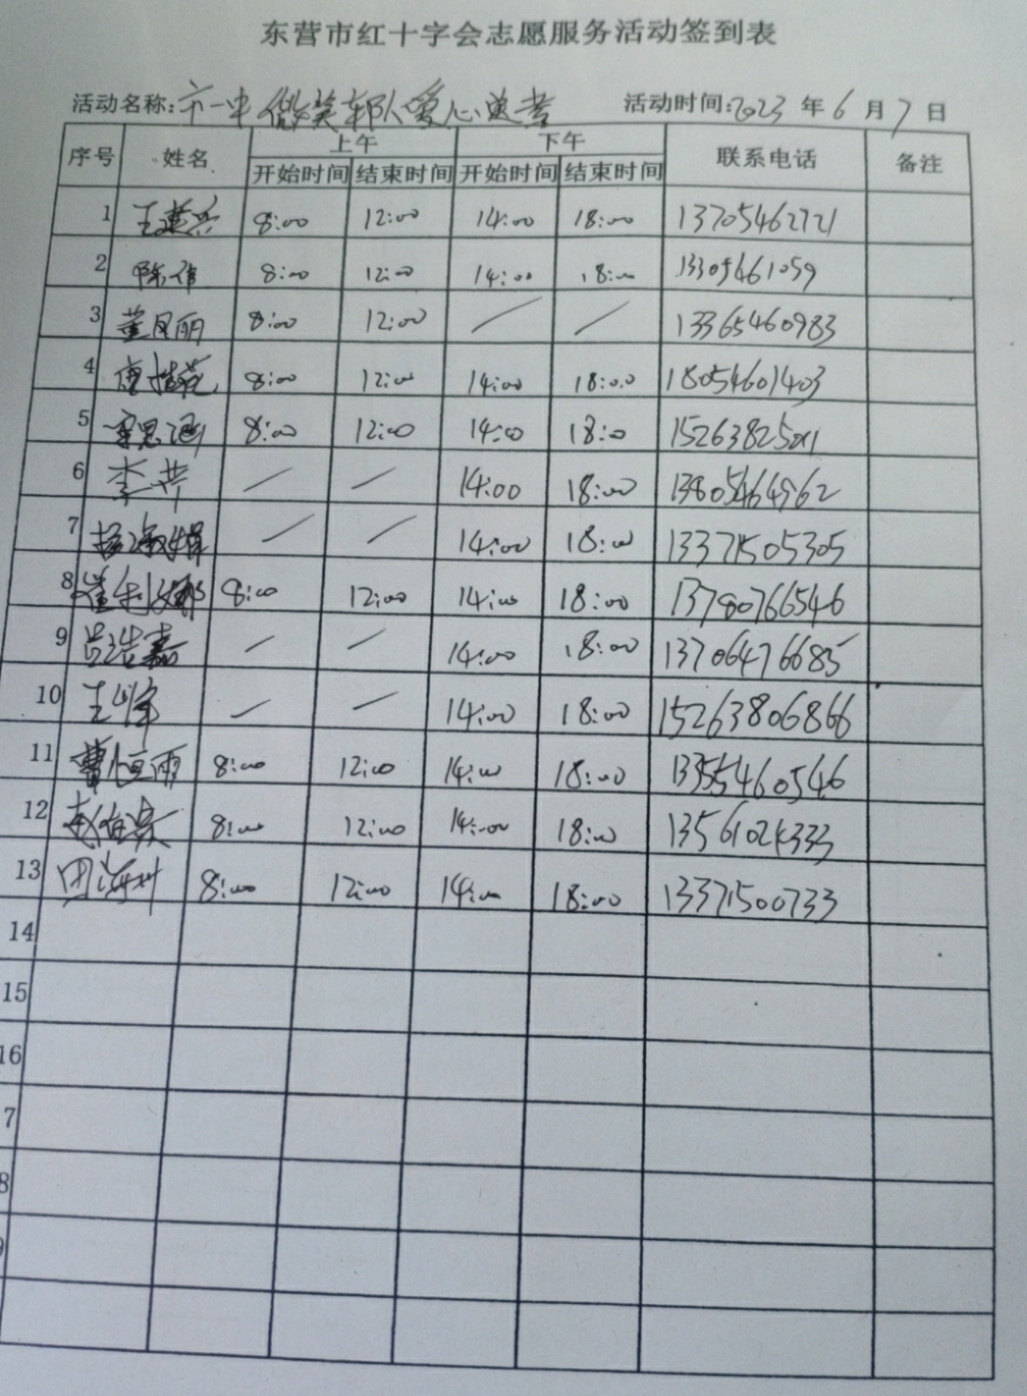 东营市红十字会志愿服务活动签到表
活动名称:市一中微笑车队爱心送考 活动时间:2023年6月7日
序号 姓名 上午 下午 联系电话 备注
开始时间 结束时间 开始时间 结束时间
1 王 8:00 12:00 14:00 18:00 13705462721
2 陈伟 8:00 12:00 14:00 18:00 13305461059
3 董凤丽 8:00 12:00 / / 13365460983
4 唐 8:00 12:00 14:00 18:00 18054601403
5 8:00 12:00 14:00 18:00
6 李 / / 14:00 18:00 13805464962
7 / / 14:00 18:00 13371505305
8 8:00 12:00 14:00 18:00 13780766546
9 吕浩嘉 / / 14:00 18:00 13706476685
10 王峰 / / 14:00 18:00 15263806866
11 曹恒雨 8:00 12:00 14:00 18:00 13355460546
12 赵 8:00 12:00 14:00 18:00
13 田海 8:00 12:00 14:00 18:00 13371500733
14
15
16
7
8
9